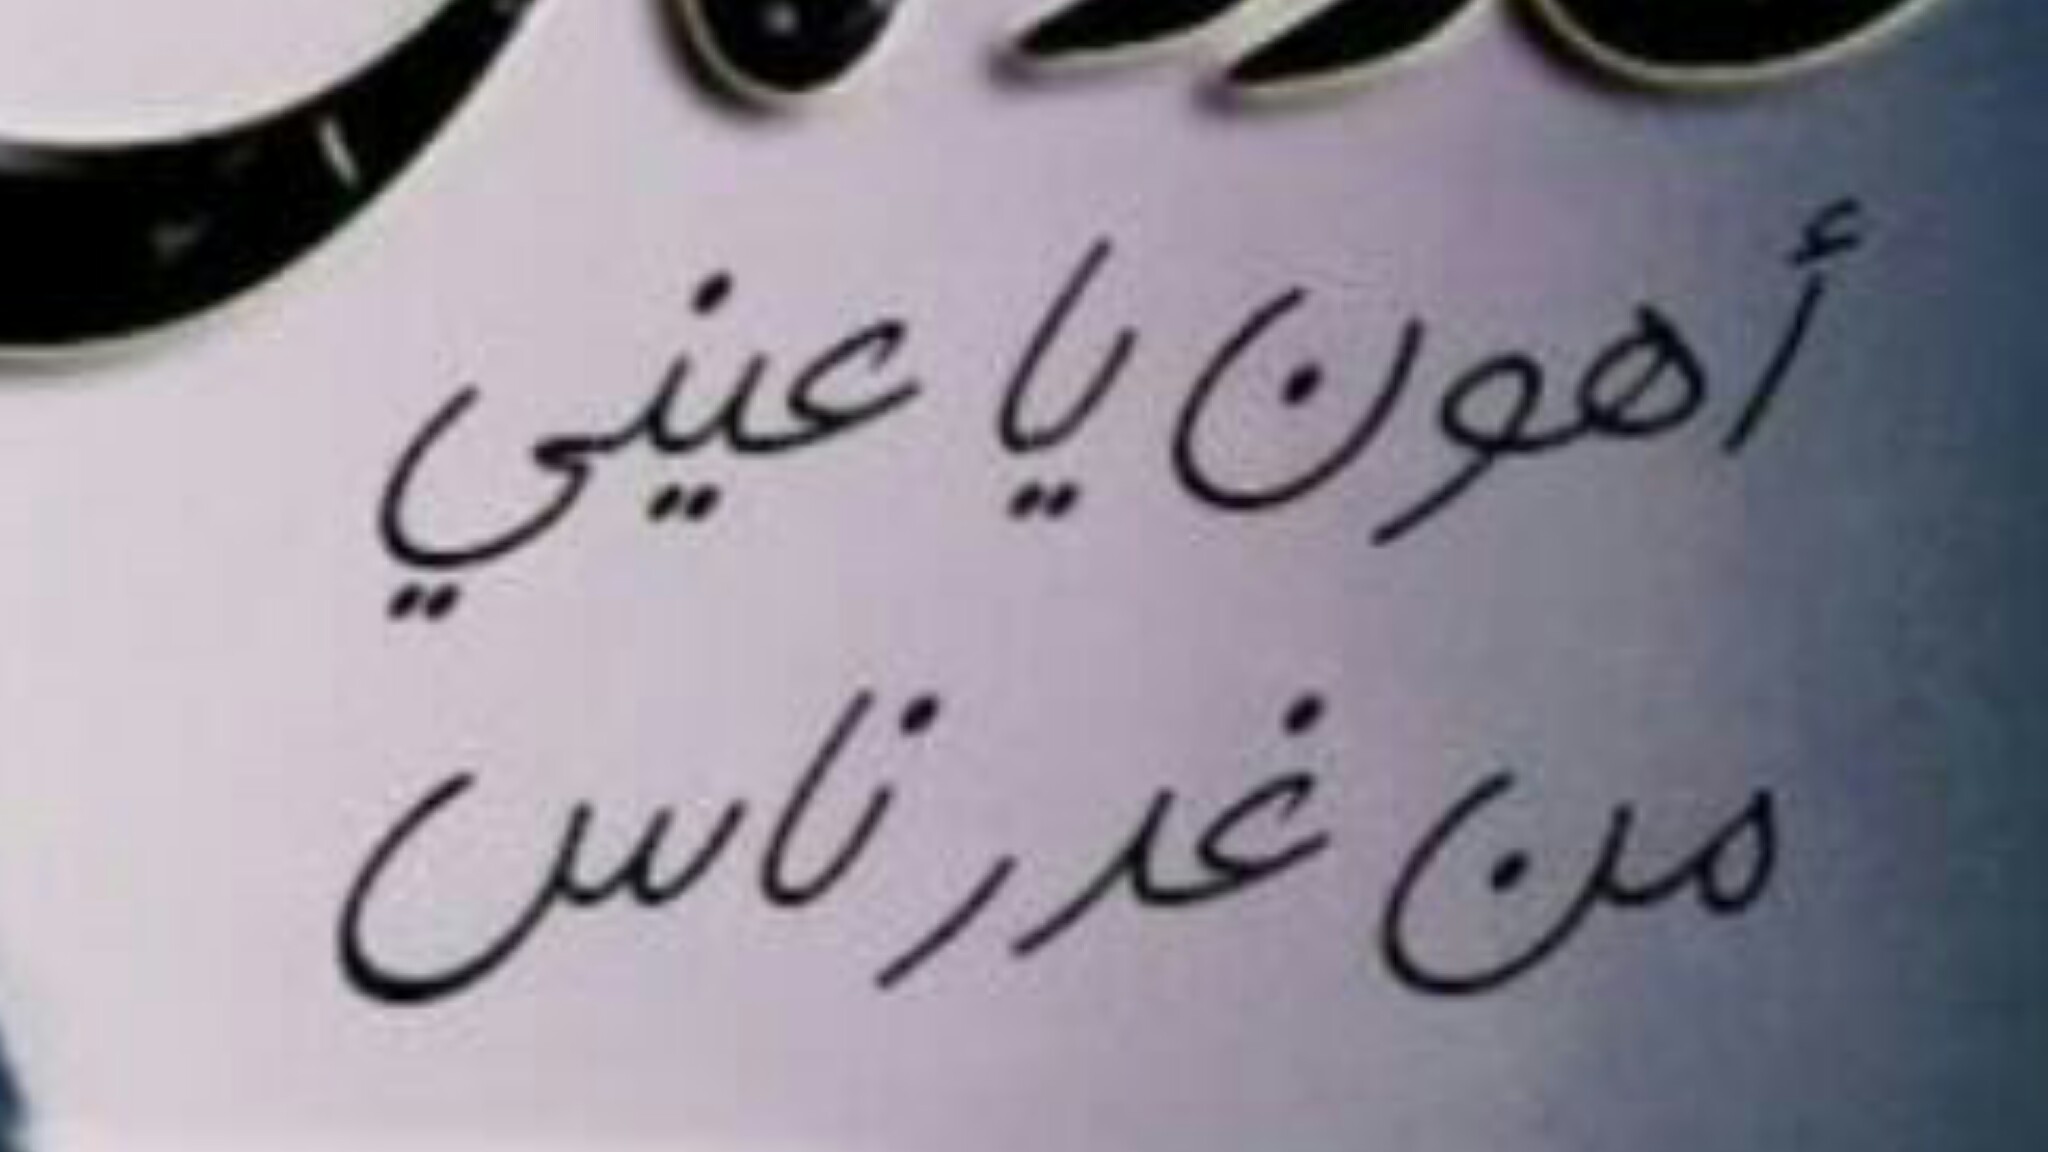 أهون يا عيني
من غدر ناس